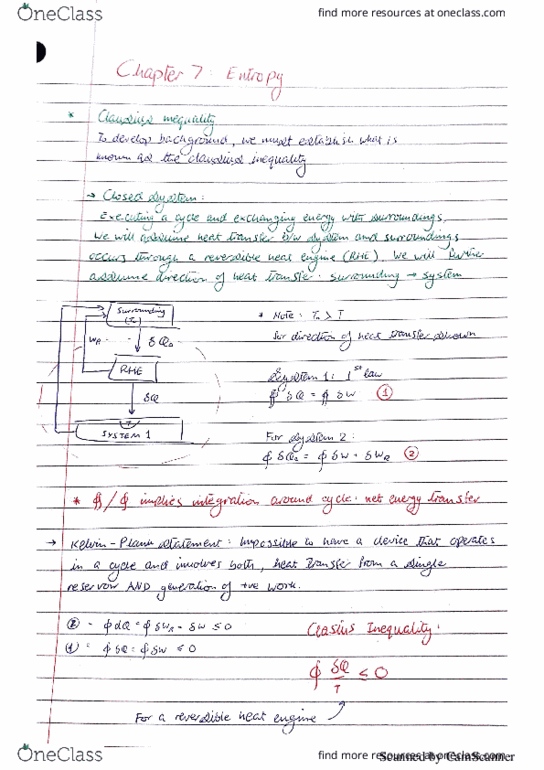 OneClass
find more resources at oneclass.com
Chapter 7: Entropy
* Clausius inequality
To develop background, we must establish what is
known as the clausius inequality
→ Closed System:
Executing a cycle and exchanging energy with surroundings.
We will assume heat transfer b/w system and surroundings
occurs through a reversible heat engine (RHE). We will further
assume direction of heat transfer: surrounding → system
Surrounding
(T₀)
* Note: T₀ > T
for direction of heat transfer shown
WR
δQ₀
RHE
δQ
T
SYSTEM 1
System 1: 1st law
∮ δQ = ∮ δW ①
For System 2:
∮ δQ₀ = ∮ δW + δWR ②
* ∮ / ∮ implies integration around cycle. net energy transfer
→ Kelvin-Plank statement: Impossible to have a device that operates
in a cycle and involves both, heat transfer from a single
reservoir AND generation of +ve work.
② = ∮ dQ = ∮ δWR + δW ≤ 0
① = ∮ δQ = ∮ δW ≤ 0
Clasius Inequality.
∮ δQ/T ≤ 0
For a reversible heat engine
OneClass
find more resources at oneclass.com
Scanned by CamScanner